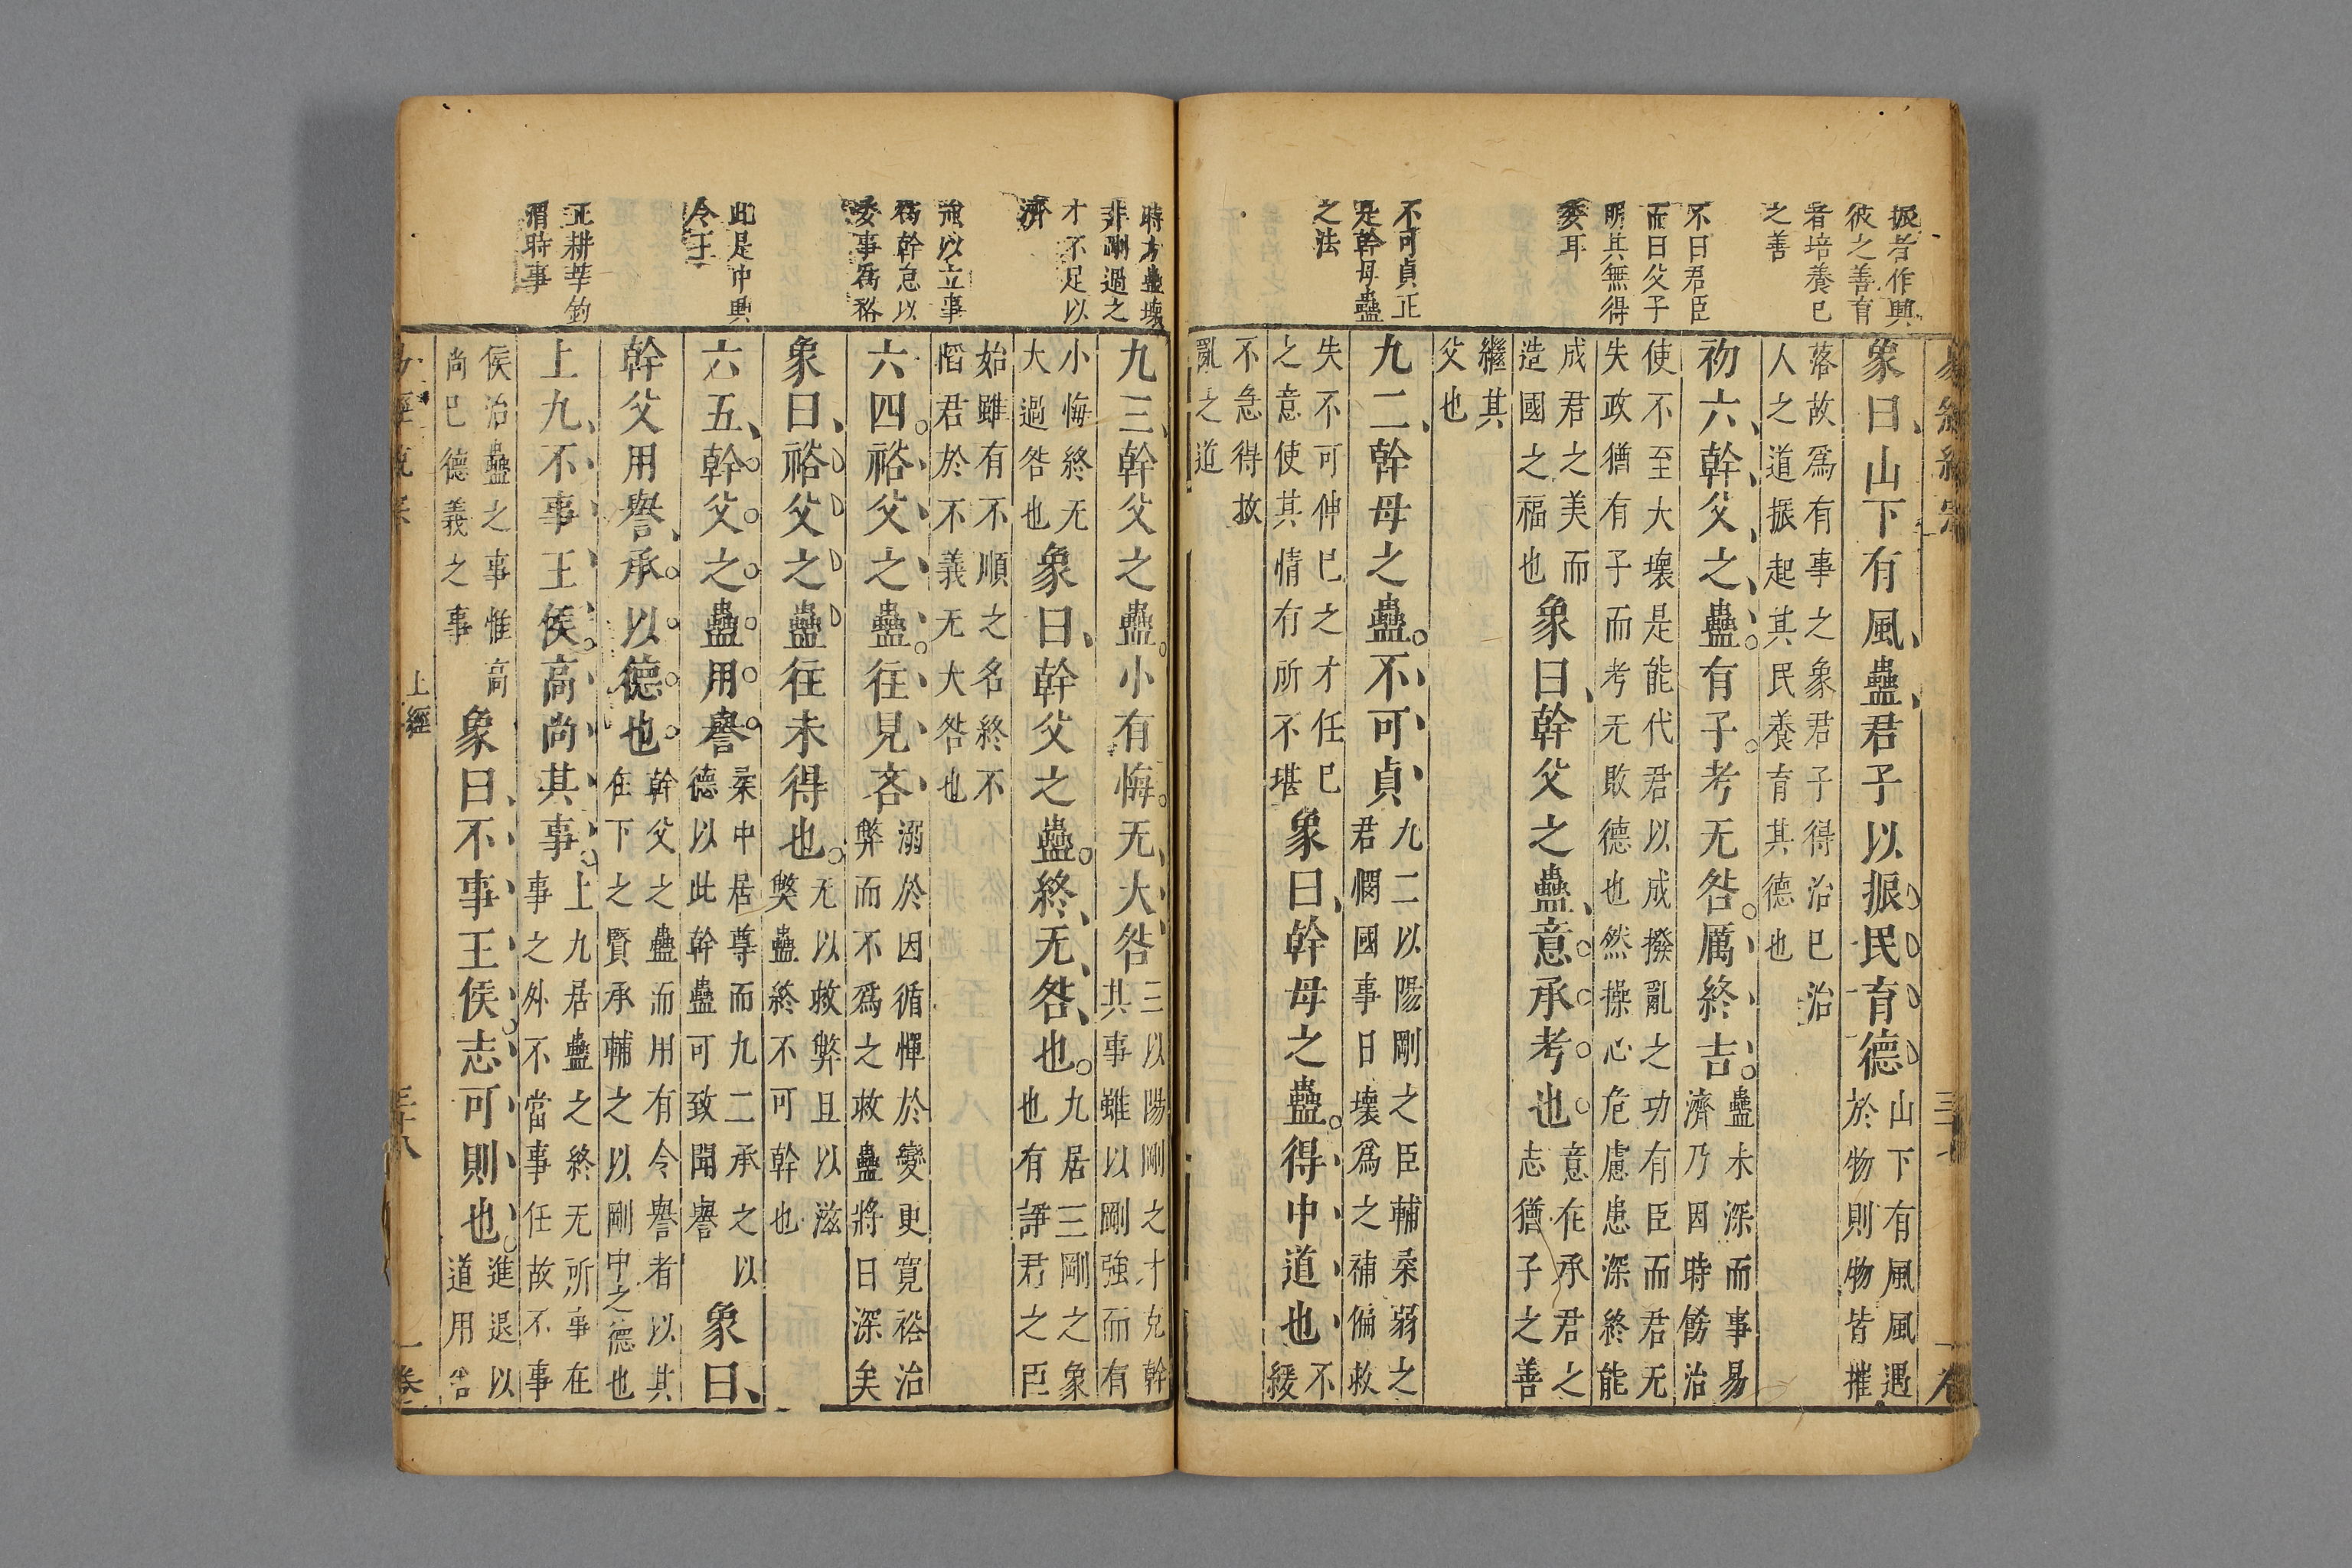 振者作興
彼之善育
者培養已
之善
不曰君臣
而曰父子
明其無得
委耳
不可貞正
是幹母蠱
之法
象曰山下有風蠱君子以振民育德
山下有風風遇
於物則物皆摧
落故爲有事之象君子得治已治
人之道振起其民養育其德也
初六幹父之蠱有子考无咎厲終吉
蠱未深而事易
濟乃因時飭治
使不至大壞是能代君以成撥亂之功有臣而君无
失政猶有子而考无敗德也然操心危慮患深終能
成君之美而
造國之福也
象曰幹父之蠱意承考也
意在承君之
志猶子之善
繼其
父也
九二幹母之蠱不可貞
九二以陽剛之臣輔柔弱之
君憫國事日壞爲之補偏救
失不可伸已之才任已
之意使其情有所不堪
象曰幹母之蠱得中道也
不
緩
不急得救
亂之道
時方蠱壞
非剛過之
才不足以
濟
強以立事
爲幹怠以
委事爲裕
此是中興
令主
正耕莘釣
渭時事
九三幹父之蠱小有悔无大咎
三以陽剛之才克幹
其事雖以剛強而有
小悔終无
大過咎也
象曰幹父之蠱終无咎也
九居三剛之象
也有諍君之臣
始雖有不順之名終不
慆君於不義无大咎也
六四裕父之蠱往見吝
溺於因循憚於變更寬裕治
弊而不爲之救蠱將日深矣
象曰裕父之蠱往未得也
无以救弊且以滋
獘蠱終不可幹也
六五幹父之蠱用譽
柔中居尊而九二承之以
德以此幹蠱可致聞譽
象曰
幹父用譽承以德也
幹父之蠱而用有令譽者以其
在下之賢承輔之以剛中之德也
上九不事王侯高尚其事
上九居蠱之終无所事在
事之外不當事任故不事
侯治蠱之事惟高
尚已德義之事
象曰不事王侯志可則也
進退以
道用舍
上經